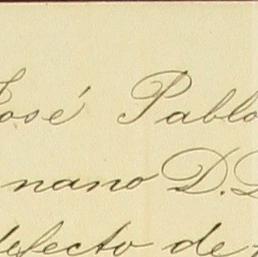 José Pablo
nano D.
efecto de